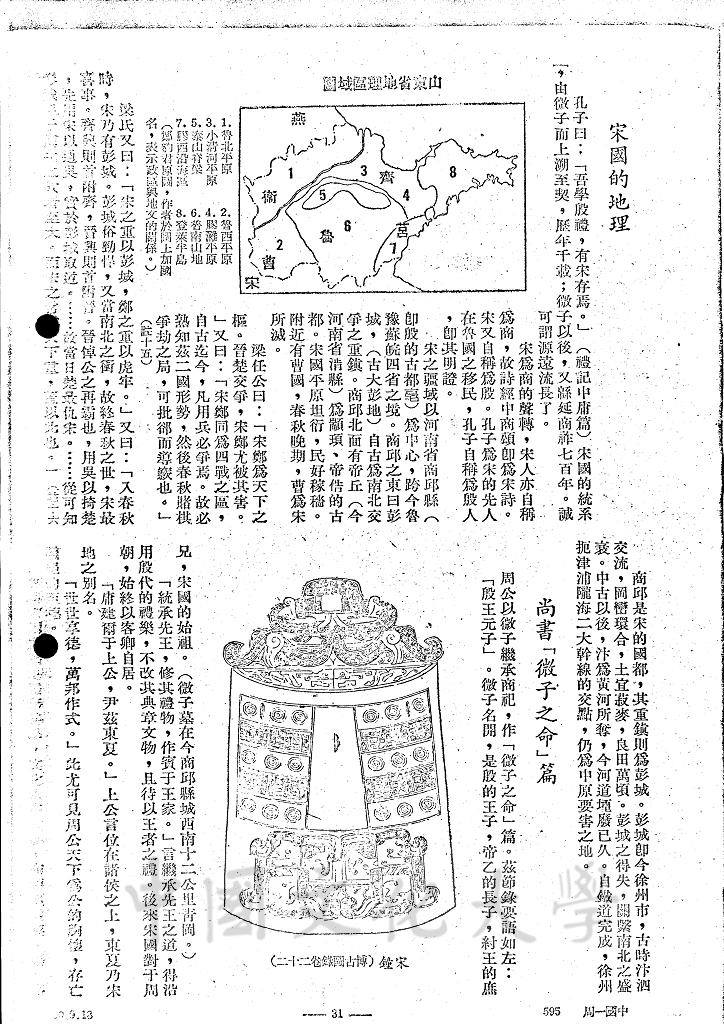 宋國的地理
孔子曰：「吾學殷禮，有宋存焉。」（禮記中庸篇）宋國的統系
，由微子而上溯至契，歷年千載；微子以後，又緜延商祚七百年。誠
可謂源遠流長了。
宋為商的聲轉，宋人亦自稱
為商，故詩經中商頌卽為宋詩。
宋又自稱為殷。孔子為宋的先人
在魯國之移民，孔子自稱為殷人
，卽其明證。
宋之疆域以河南省商邱縣（
卽殷的古都亳）為中心，跨今魯
豫蘇皖四省之境。商邱之東曰彭
城，（古大彭地）自古為南北交
爭之重鎭。商邱北面有帝丘（今
河南省清縣）為顓頊、帝俈的古
都。宋國平原坦衍，民好稼穡。
附近有曹國，春秋晚期，曹為宋
所滅。
梁任公曰：「宋鄭為天下之
樞。晉楚交爭，宋鄭尤被其害。
」又曰：「宋鄭同為四戰之區，
自古迄今，凡用兵必爭焉。故必
熟知茲二國形勢，然後春秋賭棋
爭劫之局，可批郤而導窾也。」
（註十五）
山東省地理區域圖
燕
齊
衛
魯
莒
曹
宋
1
2
3
4
5
6
7
8
1. 魯北平原
2. 魯西平原
3. 小清河平原
4. 膠濰平原
5. 泰山脊梁
6. 魯南山地
7. 膠西沿海區
8. 登萊半島
（鄧豹君原圖，作者於圖上加國
名，表示政區與地文的關係。）
梁氏又曰：「宋之重以彭城，鄭之重以虎牢。」又曰：「入春秋
時，宋乃有彭城。彭城俗勁悍，又當南北之衝，故終春秋之世，宋最
喜事。齊興則首附齊，晉興則首附晉。晉悼公之再霸也，用吳以掎楚
，先用宋以通吳，實於彭城取道。……故當日楚最仇宋。……從可知
商邱是宋的國都，其重鎭則為彭城。彭城卽今徐州市，古時汴泗
交流，岡巒環合，土宜菽麥，良田萬頃。彭城之得失，關繫南北之盛
衰。中古以後，汴為黃河所奪，今河道堙廢已久。自鐵道完成，徐州
扼津浦隴海二大幹線的交點，仍為中原要害之地。
尚書「微子之命」篇
周公以微子繼承商祀，作「微子之命」篇。茲節錄要語如左：
「殷王元子」。微子名開，是殷的王子，帝乙的長子，紂王的庶
兄，宋國的始祖。（微子墓在今商邱縣城西南十二公里青岡。）
「統承先王，修其禮物，作賓于王家。」言繼承先王之道，得沿
用殷代的禮樂，不改其典章文物，且待以王者之禮。後來宋國對于周
朝，始終以客卿自居。
「庸建爾于上公，尹茲東夏。」上公言位在諸侯之上，東夏乃宋
地之別名。
「世世享德，萬邦作式。」此尤可見周公天下為公的胸懷，存亡
宋鐘（博古圖錄卷二十二）
中國文化大學
9.13
— 31 —
595
中國一周